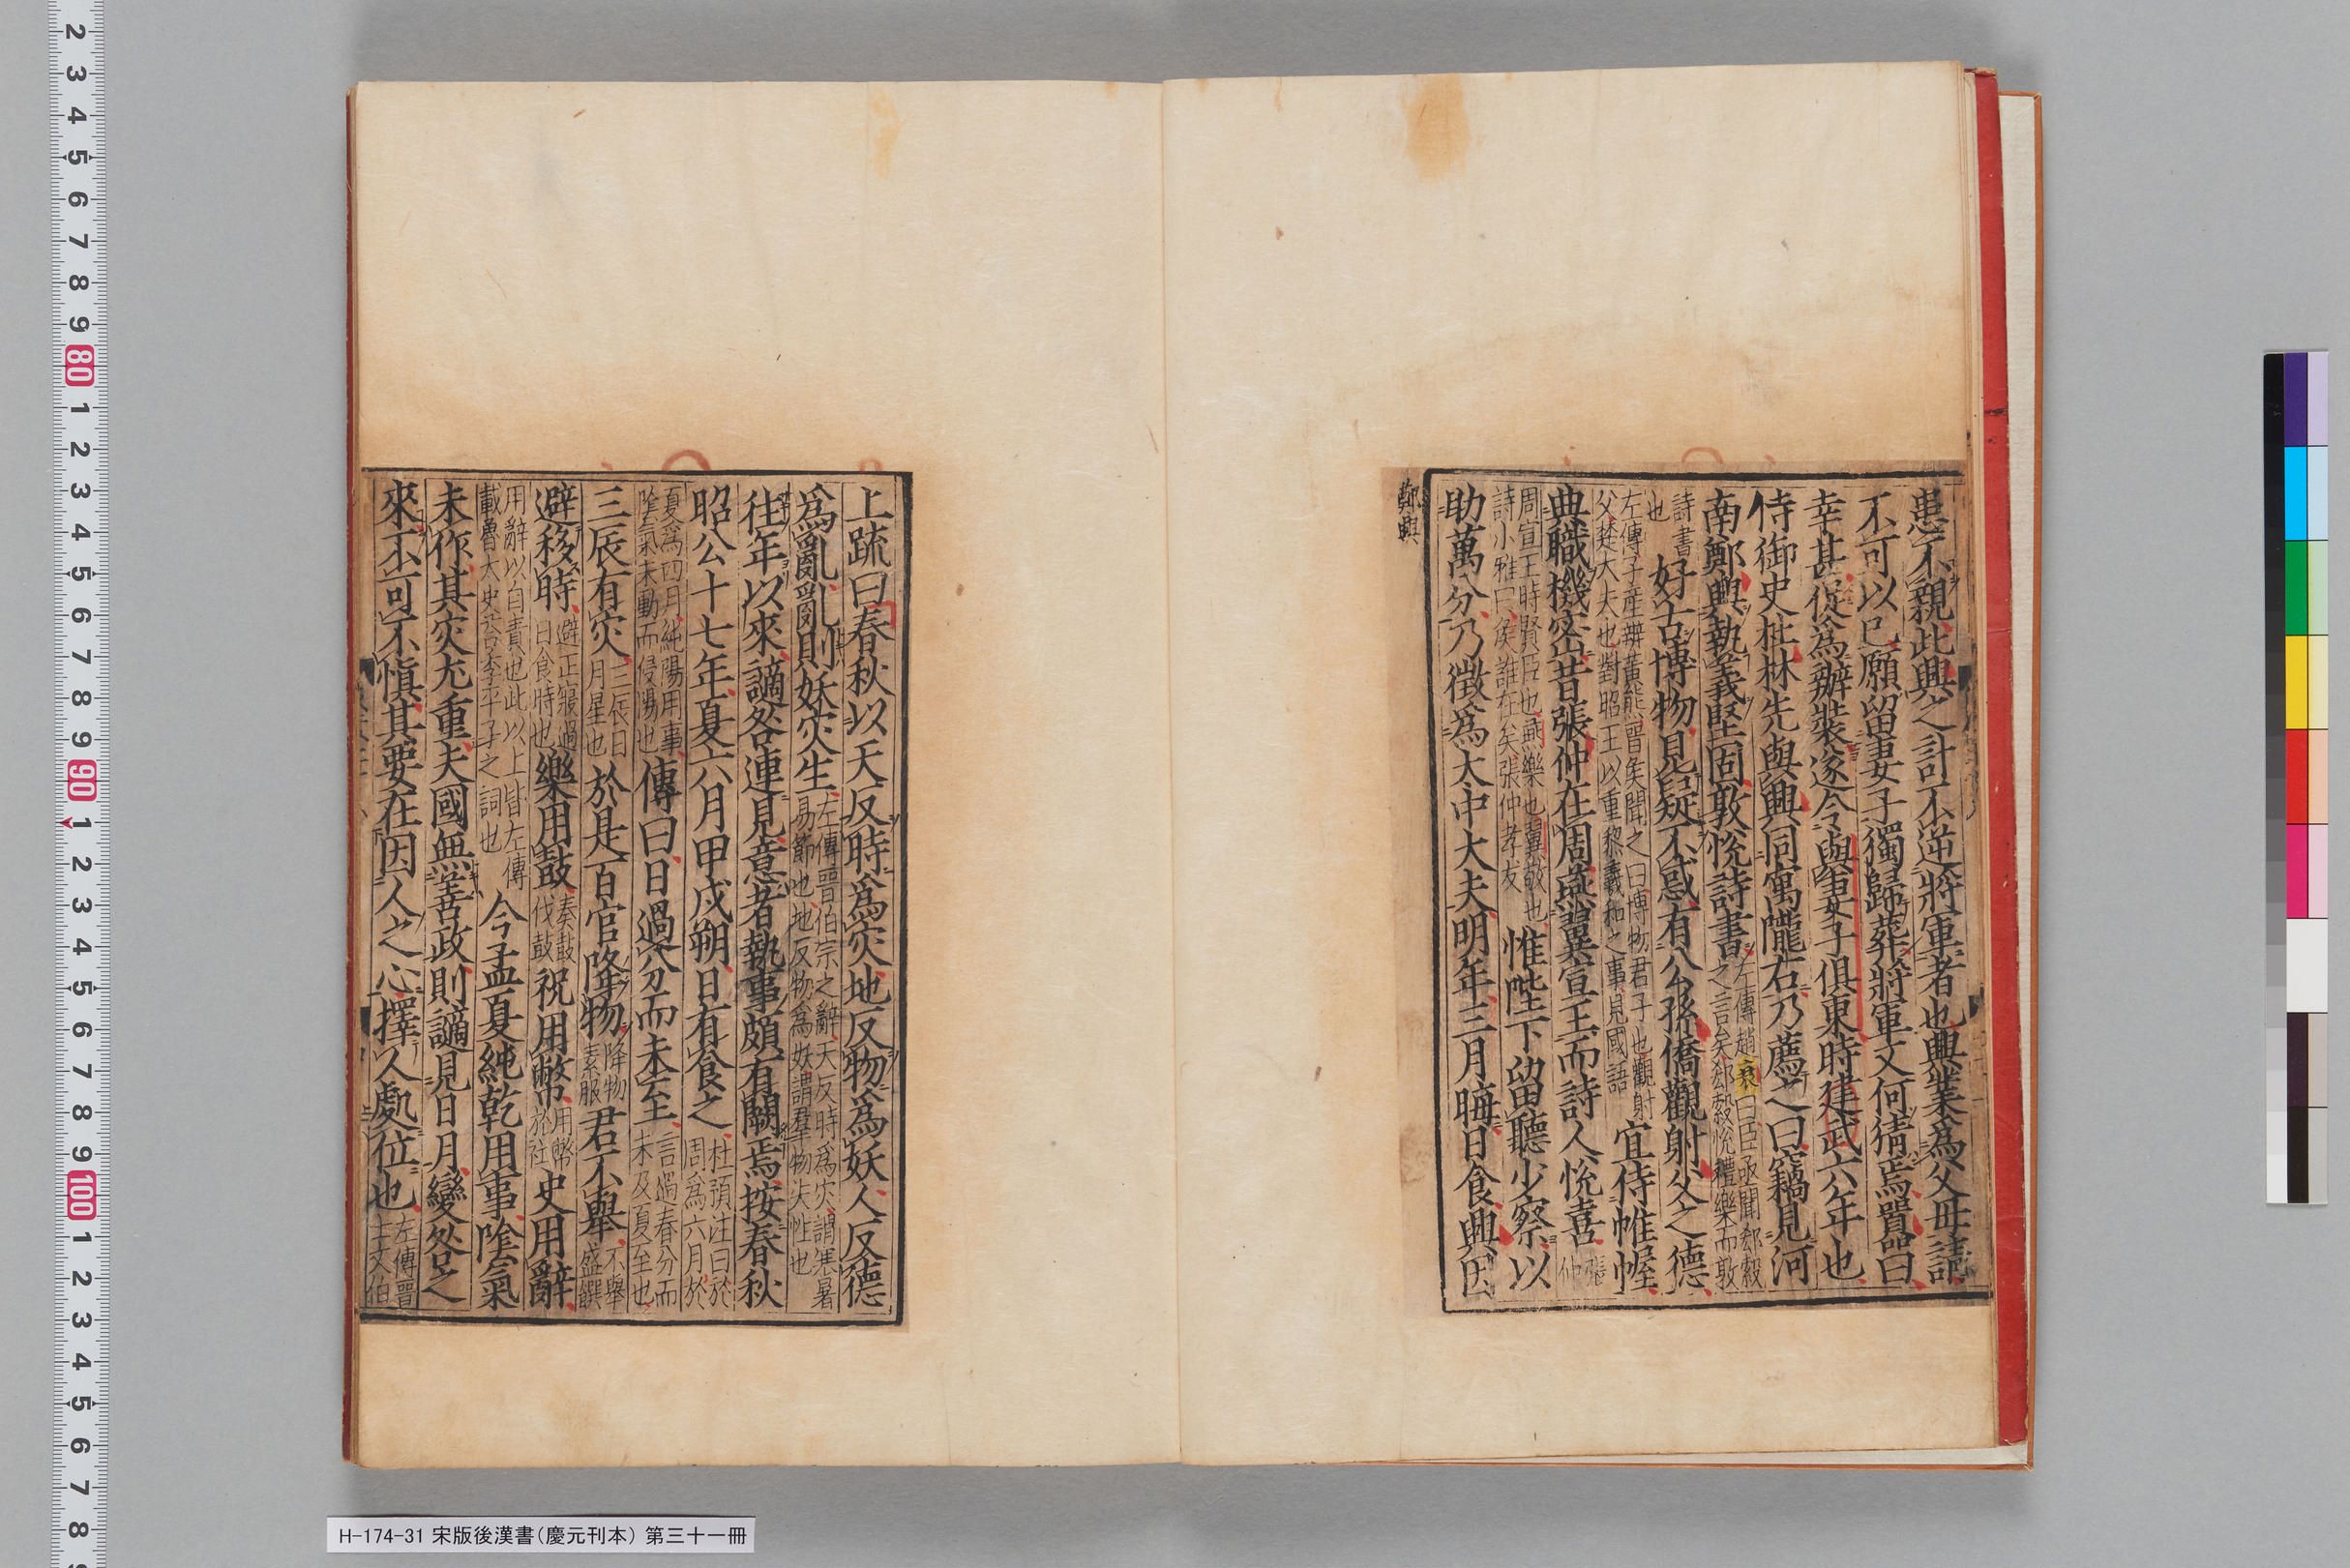 患不親此興之計不逆將軍者也興業爲父母請
不可以已願留妻子獨歸葬將軍又何猜焉囂曰
幸甚促爲辦裝遂令與妻子俱東時建武六年也
侍御史杜林先與興同寓隴右乃薦之曰竊見河
南鄭興執義堅固敦悅詩書左傳趙衰曰臣亟聞郤縠之言矣郤縠悅禮樂而敦
詩書也好古博物見疑不惑有公孫僑觀射父之德
左傳子產辨黃熊晉侯聞之曰博物君子也觀射父楚大夫也對昭王以重黎羲和之事見國語宜侍帷幄
典職機密昔張仲在周燕翼宣王而詩人悅喜張仲
周宣王時賢臣也燕樂也翼敬也詩小雅曰侯誰在矣張仲孝友惟陛下留聽少察以
助萬分乃徵爲太中大夫明年三月晦日食興因
鄭興
上疏曰春秋以天反時爲灾地反物爲妖人反德
爲亂亂則妖灾生左傳晉伯宗之辭天反時爲灾謂寒暑易節也地反物爲妖謂羣物失性也
往年以來謫咎連見意者執事頗有闕焉按春秋
昭公十七年夏六月甲戌朔日有食之杜預注曰於周爲六月於
夏爲四月純陽用事陰氣未動而侵陽也傳曰日過分而未至言過春分而未及夏至也
三辰有灾三辰日月星也於是百官降物降物素服君不舉不舉盛饌
避移時避正寢過日食時也樂用鼓奏鼓伐鼓祝用幣用幣於社史用辭
用辭以自責也此以上皆左傳載魯大史荅季平子之詞也今孟夏純乾用事陰氣
未作其灾尤重夫國無善政則謫見日月變咎之
來不可不慎其要在因人之心擇人處位也左傳晉士文伯
H-174-31 宋版後漢書(慶元刊本) 第三十一冊